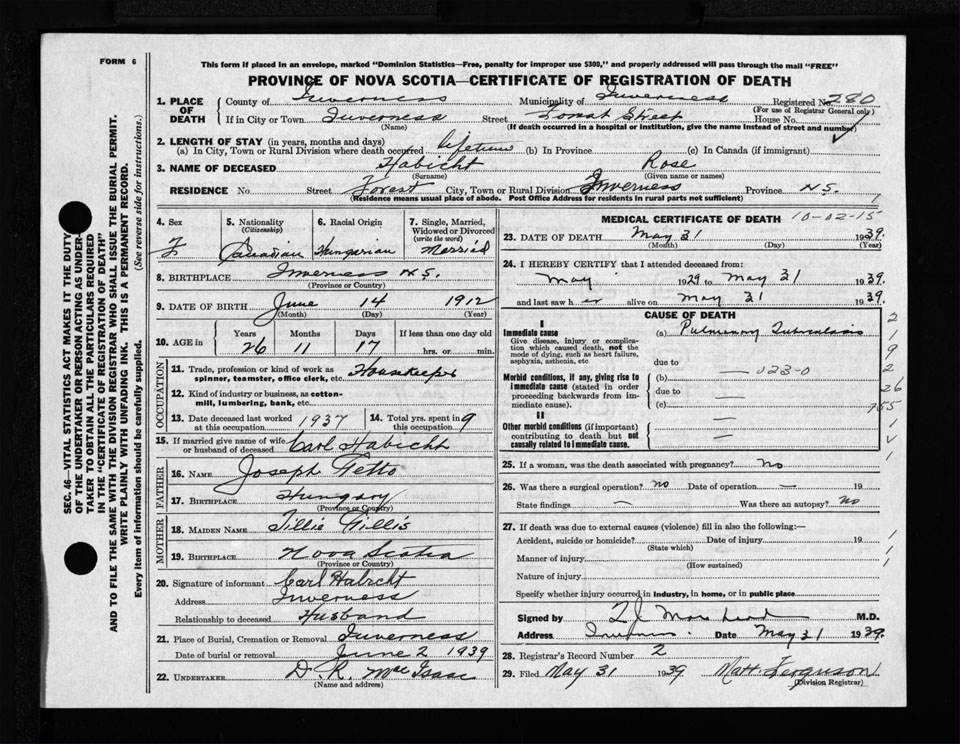 FORM 6
This form if placed in an envelope, marked "Dominion Statistics—Free, penalty for improper use $300," and properly addressed will pass through the mail "FREE"
PROVINCE OF NOVA SCOTIA—CERTIFICATE OF REGISTRATION OF DEATH
1. PLACE OF DEATH
County of Inverness Municipality of Inverness Registered No. 280
(For use of Registrar General only)
If in City or Town Inverness Street Forest Street House No.
(Name) (If death occurred in a hospital or institution, give the name instead of street and number)
2. LENGTH OF STAY (in years, months and days)
(a) In City, Town or Rural Division where death occurred lifetime (b) In Province (c) In Canada (if immigrant)
3. NAME OF DECEASED Habicht Rose
(Surname) (Given name or names)
RESIDENCE No. Street Forest City, Town or Rural Division Inverness Province N.S.
(Residence means usual place of abode. Post Office Address for residents in rural parts not sufficient)
4. Sex F
5. Nationality (Citizenship) Canadian
6. Racial Origin Hungarian
7. Single, Married, Widowed or Divorced (write the word) Married
8. BIRTHPLACE Inverness N.S.
(Province or Country)
9. DATE OF BIRTH June 14 1912
(Month) (Day) (Year)
10. AGE in Years 26 Months 11 Days 17 If less than one day old hrs. or min.
OCCUPATION
11. Trade, profession or kind of work as spinner, teamster, office clerk, etc. Housekeeper
12. Kind of industry or business, as cotton-mill, lumbering, bank, etc.
13. Date deceased last worked at this occupation 1937
14. Total yrs. spent in this occupation 9
15. If married give name of wife or husband of deceased Carl Habicht
FATHER
16. NAME Joseph Fetto
17. BIRTHPLACE Hungary
(Province or Country)
MOTHER
18. MAIDEN NAME Tillie Gillis
19. BIRTHPLACE Nova Scotia
(Province or Country)
20. Signature of informant Carl Habicht
Address Inverness
Relationship to deceased Husband
21. Place of Burial, Cremation or Removal Inverness
Date of burial or removal June 2 1939
22. UNDERTAKER D. R. MacIsaac
(Name and address)
MEDICAL CERTIFICATE OF DEATH 10-02-15
23. DATE OF DEATH May 31 1939.
(Month) (Day) (Year)
24. I HEREBY CERTIFY that I attended deceased from:
May 1929 to May 31 1939.
and last saw her alive on May 31 1939.
CAUSE OF DEATH
I
Immediate cause (a) Pulmonary Tuberculosis
Give disease, injury or complication which caused death, not the mode of dying, such as heart failure, asphyxia, asthenia, etc
due to
Morbid conditions, if any, giving rise to immediate cause (stated in order proceeding backwards from immediate cause). (b) — 023-0
due to —
(c) —
II
Other morbid conditions (if important) contributing to death but not causally related to immediate cause. —
2
1
9
2
26
755
1
1
25. If a woman, was the death associated with pregnancy? No
26. Was there a surgical operation? no Date of operation — 19
State findings — Was there an autopsy? No
27. If death was due to external causes (violence) fill in also the following:—
Accident, suicide or homicide? Date of injury 19
(State which)
Manner of injury
(How sustained)
Nature of injury
Specify whether injury occurred in industry, in home, or in public place
1
1
1
Signed by M.D.
Address Inverness. Date May 31 1939.
28. Registrar's Record Number 2
29. Filed May 31 1939 Matt. Ferguson
(Division Registrar)
SEC. 46—VITAL STATISTICS ACT MAKES IT THE DUTY
OF THE UNDERTAKER OR PERSON ACTING AS UNDERTAKER TO OBTAIN ALL THE PARTICULARS REQUIRED
IN THE "CERTIFICATE OF REGISTRATION OF DEATH"
AND TO FILE THE SAME WITH THE DIVISION REGISTRAR WHO SHALL ISSUE THE BURIAL PERMIT.
WRITE PLAINLY WITH UNFADING INK. THIS IS A PERMANENT RECORD.
Every item of information should be carefully supplied. (See reverse side for instructions.)